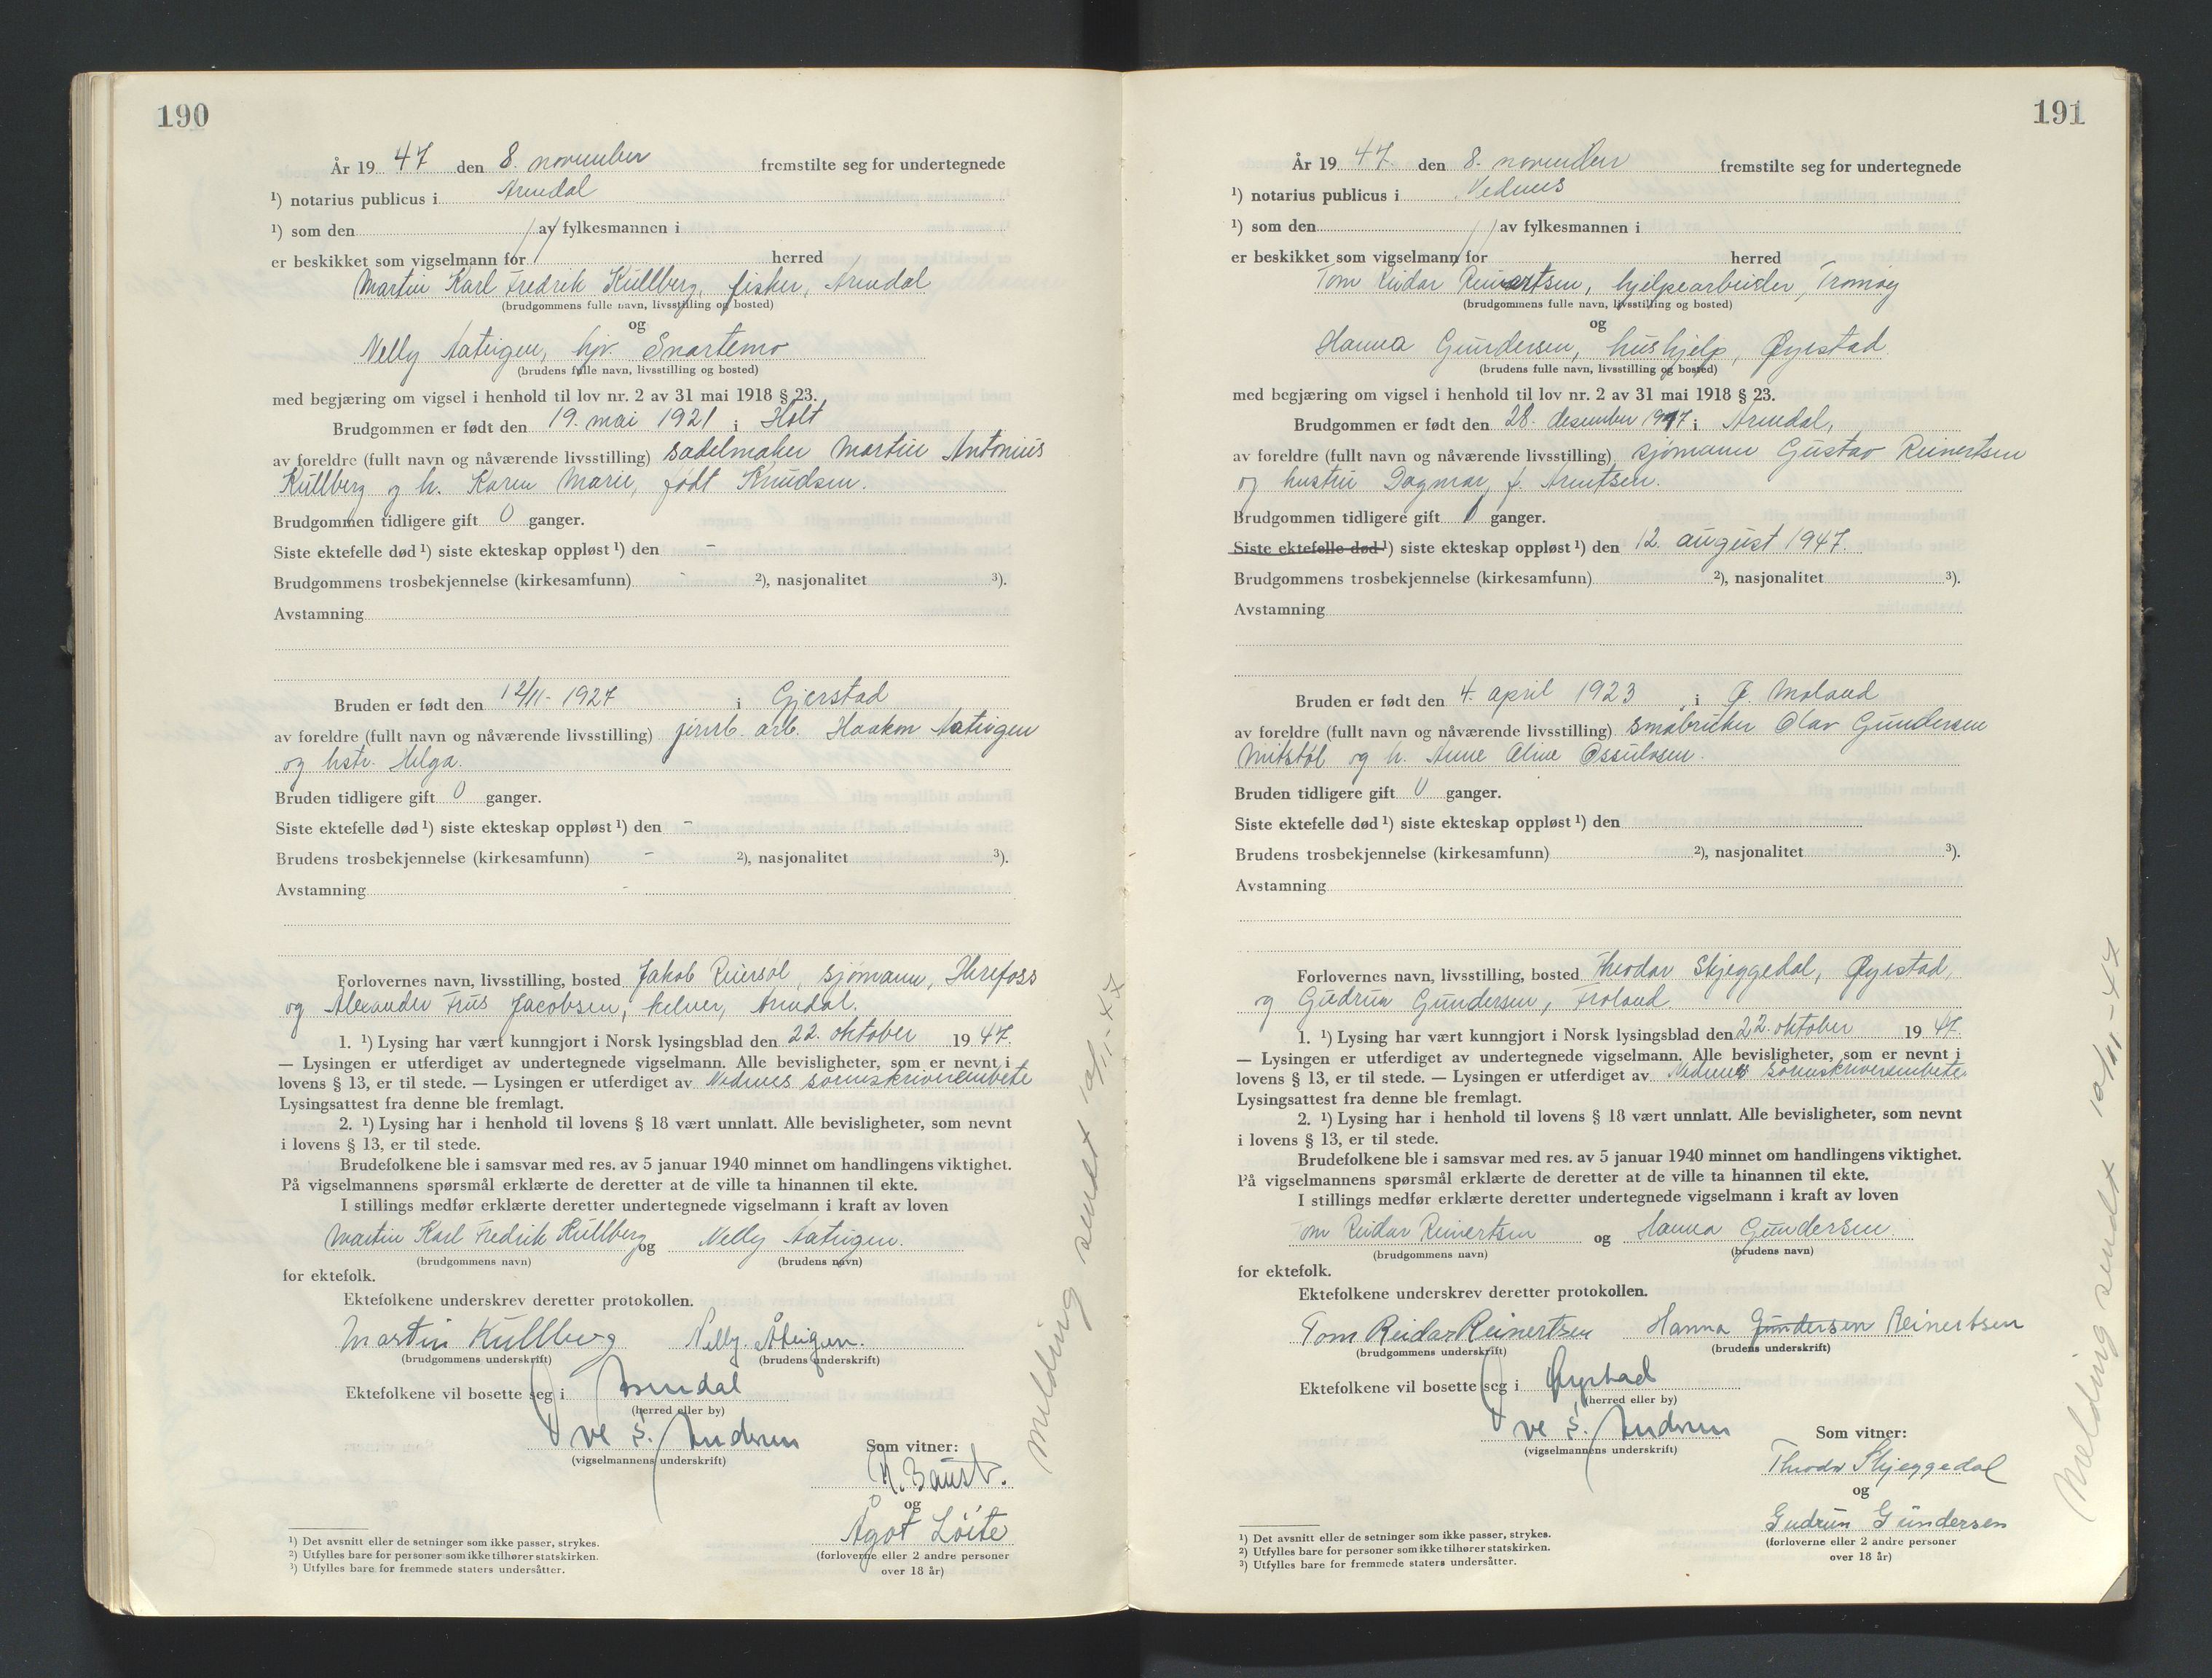 190
År 19 47 den 8. november fremstilte seg for undertegnede
¹) notarius publicus i Arendal
¹) som den av fylkesmannen i
er beskikket som vigselmann for herred
Martin Karl Fredrik Kullberg, fisker, Arendal
(brudgommens fulle navn, livsstilling og bosted)
og
Nelly Aateigen, hjv. Snartemo
(brudens fulle navn, livsstilling og bosted)
med begjæring om vigsel i henhold til lov nr. 2 av 31 mai 1918 § 23.
Brudgommen er født den 19. mai 1921 i Holt
av foreldre (fullt navn og nåværende livsstilling) sadelmaker Martin Antonius
Kullberg og h. Karen Marie, født Knudsen.
Brudgommen tidligere gift 0 ganger.
Siste ektefelle død ¹) siste ekteskap oppløst ¹) den -
Brudgommens trosbekjennelse (kirkesamfunn) - ²), nasjonalitet ³).
Avstamning
Bruden er født den 12/11- 1927 i Gjerstad
av foreldre (fullt navn og nåværende livsstilling) jernb. arb. Haakon Aateigen
og hstr. Helga.
Bruden tidligere gift 0 ganger.
Siste ektefelle død ¹) siste ekteskap oppløst ¹) den -
Brudens trosbekjennelse (kirkesamfunn) - ²), nasjonalitet ³).
Avstamning -
Forlovernes navn, livsstilling, bosted Jakob Reiersøl, sjømann, Herefoss
og Alexander Friis Jacobsen, kelner, Arendal.
1. ¹) Lysing har vært kunngjort i Norsk lysingsblad den 22. oktober 19 47.
— Lysingen er utferdiget av undertegnede vigselmann. Alle bevisligheter, som er nevnt i
lovens § 13, er til stede. — Lysingen er utferdiget av Nedenes sorenskriverembete
Lysingsattest fra denne ble fremlagt.
2. ¹) Lysing har i henhold til lovens § 18 vært unnlatt. Alle bevisligheter, som nevnt
i lovens § 13, er til stede.
Brudefolkene ble i samsvar med res. av 5 januar 1940 minnet om handlingens viktighet.
På vigselmannens spørsmål erklærte de deretter at de ville ta hinannen til ekte.
I stillings medfør erklærte deretter undertegnede vigselmann i kraft av loven
Martin Karl Fredrik Kullberg og Nelly Aateigen.
(brudgommens navn) (brudens navn)
for ektefolk.
Ektefolkene underskrev deretter protokollen.
Martin Kullberg Nelly Åteigen.
(brudgommens underskrift) (brudens underskrift)
Ektefolkene vil bosette seg i Arendal
(herred eller by)
(vigselmannens underskrift)
Som vitner:
og
Ågot Løite
(forloverne eller 2 andre personer
over 18 år)
¹) Det avsnitt eller de setninger som ikke passer, strykes.
²) Utfylles bare for personer som ikke tilhører statskirken.
³) Utfylles bare for fremmede staters undersåtter.
Melding sendt 10/11-47
191
År 19 47. den 8. november fremstilte seg for undertegnede
¹) notarius publicus i Nedenes
¹) som den av fylkesmannen i
er beskikket som vigselmann for herred
Tom Reidar Reinertsen, hjelpearbeider, Tromøy
(brudgommens fulle navn, livsstilling og bosted)
og
Hanna Gundersen, hushjelp, Øyestad
(brudens fulle navn, livsstilling og bosted)
med begjæring om vigsel i henhold til lov nr. 2 av 31 mai 1918 § 23.
Brudgommen er født den 28. desember 1917 i Arendal,
av foreldre (fullt navn og nåværende livsstilling) sjømann Gustav Reinertsen
og hustru Dagmar, f. Arntsen.
Brudgommen tidligere gift 1 ganger.
Siste ektefelle død ¹) siste ekteskap oppløst ¹) den 12. august 1947.
Brudgommens trosbekjennelse (kirkesamfunn) ²), nasjonalitet ³).
Avstamning
Bruden er født den 4. april 1923, i Ø. Moland
av foreldre (fullt navn og nåværende livsstilling) småbruker Olav Gundersen
Mitstøl og h. Anne Oline Ossulosen.
Bruden tidligere gift 0 ganger.
Siste ektefelle død ¹) siste ekteskap oppløst ¹) den
Brudens trosbekjennelse (kirkesamfunn) ²), nasjonalitet ³).
Avstamning
Forlovernes navn, livsstilling, bosted Theodor Skjeggedal, Øyestad,
og Gudrun Gundersen, Froland.
1. ¹) Lysing har vært kunngjort i Norsk lysingsblad den 22. oktober 19 47.
— Lysingen er utferdiget av undertegnede vigselmann. Alle bevisligheter, som er nevnt i
lovens § 13, er til stede. — Lysingen er utferdiget av Nedenes sorenskriverembete
Lysingsattest fra denne ble fremlagt.
2. ¹) Lysing har i henhold til lovens § 18 vært unnlatt. Alle bevisligheter, som nevnt
i lovens § 13, er til stede.
Brudefolkene ble i samsvar med res. av 5 januar 1940 minnet om handlingens viktighet.
På vigselmannens spørsmål erklærte de deretter at de ville ta hinannen til ekte.
I stillings medfør erklærte deretter undertegnede vigselmann i kraft av loven
Tom Reidar Reinertsen og Hanna Gundersen.
(brudgommens navn) (brudens navn)
for ektefolk.
Ektefolkene underskrev deretter protokollen.
Tom Reidar Reinertsen Hanna Gundersen Reinertsen
(brudgommens underskrift) (brudens underskrift)
Ektefolkene vil bosette seg i Øyestad
(herred eller by)
(vigselmannens underskrift)
Som vitner:
Theodor Skjeggedal
og
Gudrun Gundersen
(forloverne eller 2 andre personer
over 18 år)
¹) Det avsnitt eller de setninger som ikke passer, strykes.
²) Utfylles bare for personer som ikke tilhører statskirken.
³) Utfylles bare for fremmede staters undersåtter.
Melding sendt 10/11-47